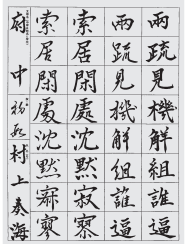 兩疏見機解組誰逼
兩疏見機解組誰逼
索居閒處沈默寂寥
索居閒處沈默寂寥
府中 村上奏海